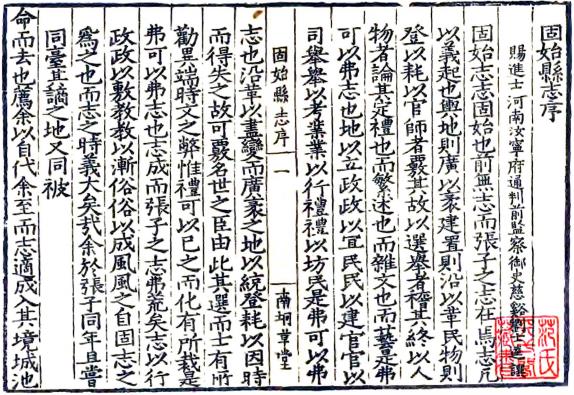 固始縣志序
賜進士河南汝寧府通判前監察御史慈谿劉撰
固始志志固始也前無志而張子之志在焉志凡
以義起也輿地則廣以袤建署則沿以革民物則
登以耗以官師者覈其故以選舉者稽其終以人
物者論其近禮也而繁述也而雜文也而藝是弗
可以弗志也地以立政政以宜民民以建官官以
司舉舉以考業業以行禮禮以坊民是弗可以弗
固始縣志序 一 南垌草堂
志也沿革以盡變而廣袤之地以統登耗以因時
而得失之故可覈名世之臣由此其選而士有所
勸異端時文之弊惟禮可以已之而化有所裁是
弗可以弗志也志成而張子之志弗荒矣志以行
政政以敷教教以漸俗俗以成風風之自固志之
為之也而志之時義大矣哉余於張子同年且嘗
同臺其謫之地又同被
命而去也薦余以自代余至而志適成入其境城池